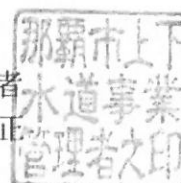 者
正
那覇市上下
水道事業
管理者之印